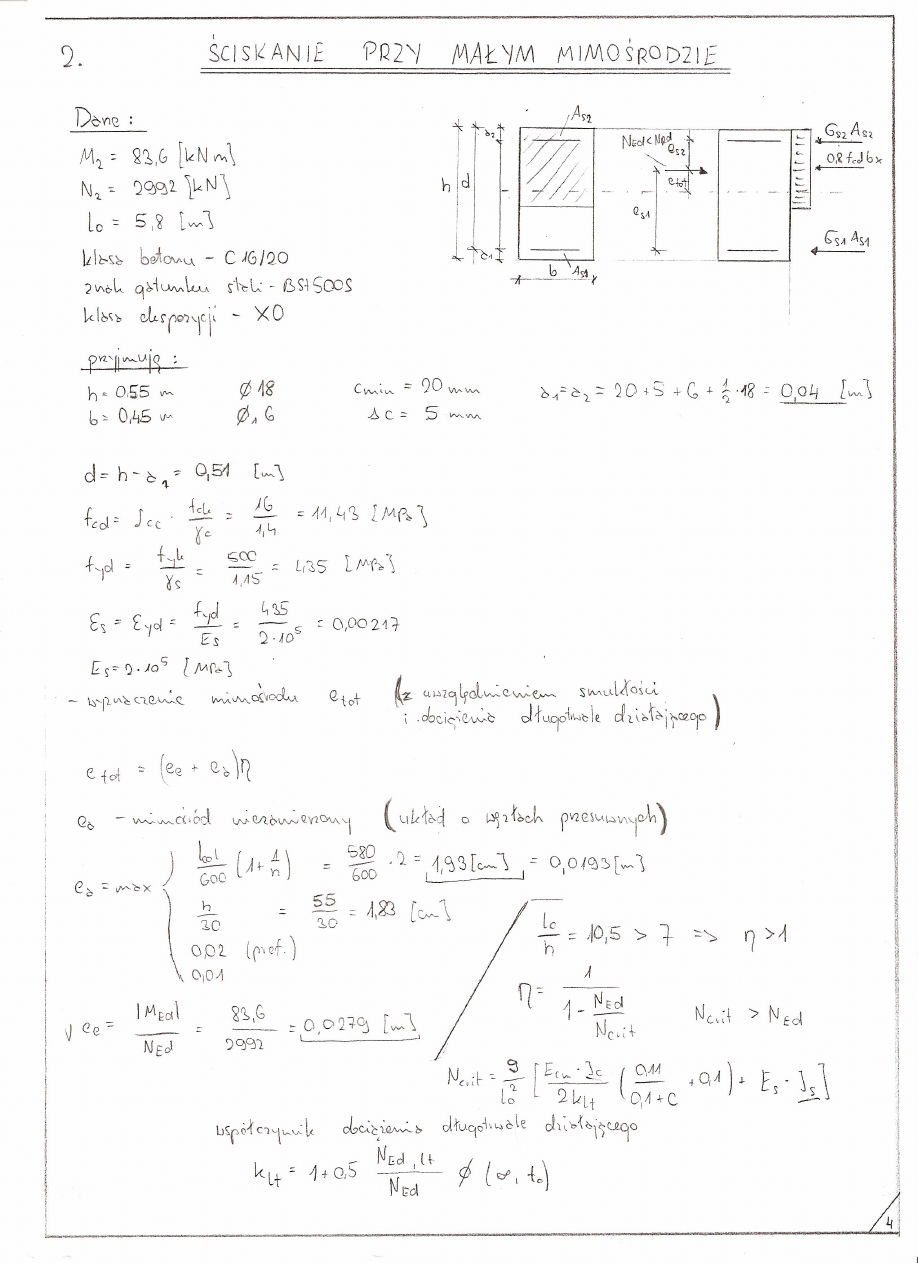 2. ŚCISKANIE PRZY MAŁYM MIMOŚRODZIE
Dane :
M₂ = 83,6 [kNm]
N₂ = 2992 [kN]
l₀ = 5,8 [m]
klasa betonu - C 16/20
znak gatunku stali - BSt500S
klasa ekspozycji - X0
As2
a2
h d
a1
b As1
NEd<NRd
es2
etot
es1
σs2 As2
0,8 fcd bx
σs1 As1
przyjmuję :
h = 0,55 m ∅ 18 cmin = 20 mm a₁=a₂ = 20 + 5 + 6 + ½·18 = 0,04 [m]
b = 0,45 m ∅₁ 6 Δc = 5 mm
d = h - a₁ = 0,51 [m]
fcd = αcc · fck/γc = 16/1,4 = 11,43 [MPa]
fyd = fyk/γs = 500/1,15 = 435 [MPa]
εs = εyd = fyd/Es = 435/2·10⁵ = 0,00217
Es = 2·10⁵ [MPa]
- wyznaczenie mimośrodu etot (z uwzględnieniem smukłości
i obciążenia długotrwale działającego)
etot = (ee + ea)η
ea - mimośród niezamierzony (układ o węzłach przesuwnych)
ea = max
lcol/600 (1 + 1/n) = 580/600 · 2 = 1,93 [cm] = 0,0193 [m]
h/30 = 55/30 = 1,83 [cm]
0,02 (pref.)
0,01
lo/h = 10,5 > 7 => η > 1
η = 1/(1 - NEd/Ncrit) Ncrit > NEd
√ ee = |MEd|/NEd = 83,6/2992 = 0,0279 [m]
Ncrit = 9/lo² [Ecm · Jc/2klt (0,11/0,1+C + 0,1) + Es · Js]
współczynnik obciążenia długotrwale działającego
klt = 1 + 0,5 NEd,lt/NEd ∅ (∞, t₀)
4